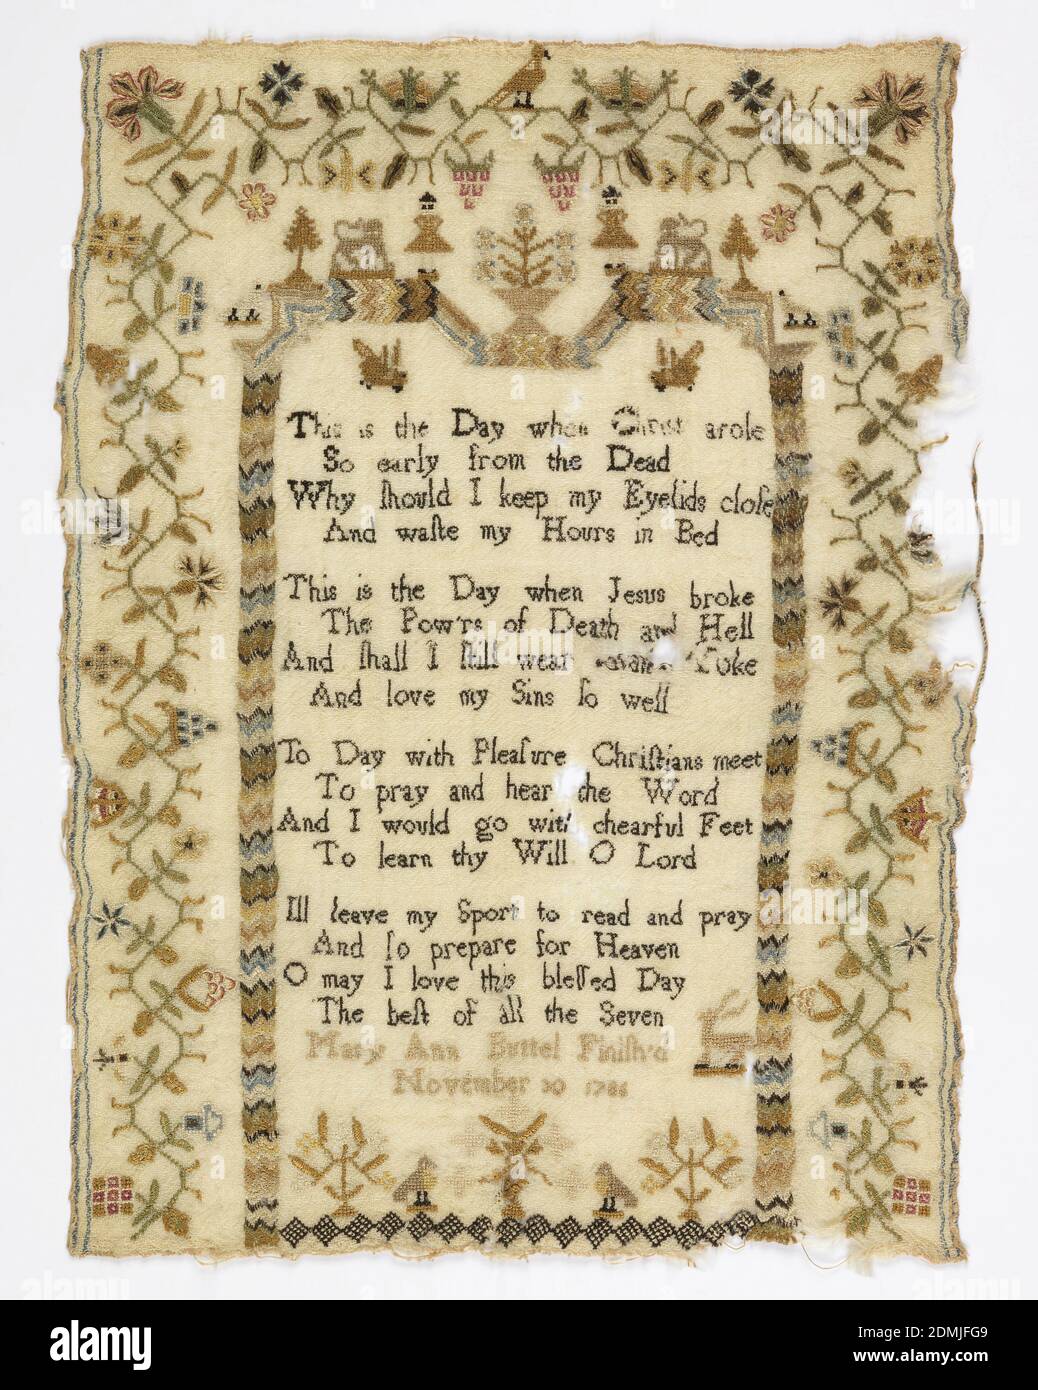 This is the Day when Christ aroſe
So early from the Dead
Why ſhould I keep my Eyelids cloſe
And waſte my Hours in Bed
This is the Day when Jesus broke
The Pow'rs of Death and Hell
And ſhall I ſtill wear Yoke
And love my Sins ſo well
To Day with Pleaſure Chriſtians meet
To pray and hear the Word
And I would go with chearful Feet
To learn thy Will O Lord
Ill leave my Sport to read and pray
And ſo prepare for Heaven
O may I love this bleſſed Day
The beſt of all the Seven
Mary Ann Finiſh'd
November
alamy
Image ID: 2DMJFG9
www.alamy.com